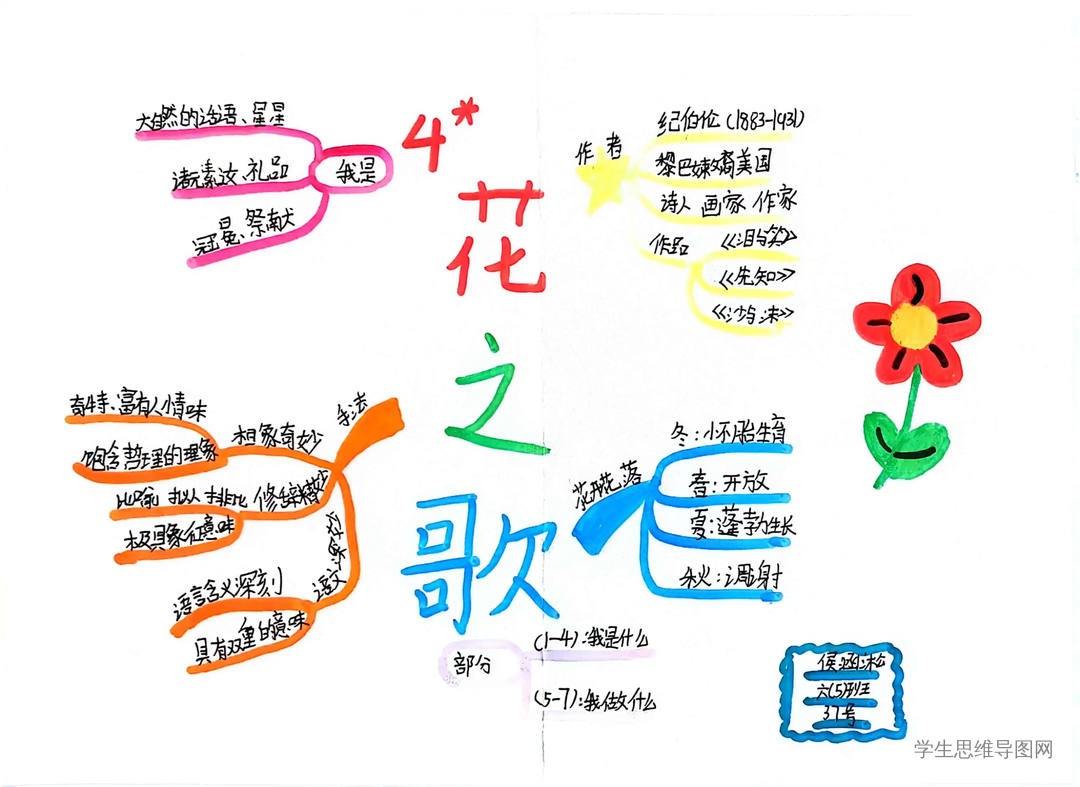 4*
花
之
歌
我是
大自然的话语、星星
诸元素之女、礼品
冠冕、祭献
作者
纪伯伦(1883-1931)
黎巴嫩裔美国
诗人 画家 作家
作品
《泪与笑》
《先知》
《沙与沫》
手法
想象奇妙
奇特、富有人情味
饱含哲理的理象
修辞精妙
比喻 拟人 排比
极具象征意味
语言含义深刻
具有双重的意味
花开花落
冬:怀胎生育
春:开放
夏:蓬勃生长
秋:凋射
部分
(1-4):我是什么
(5-7):我做什么
六(5)班
37号
学生思维导图网